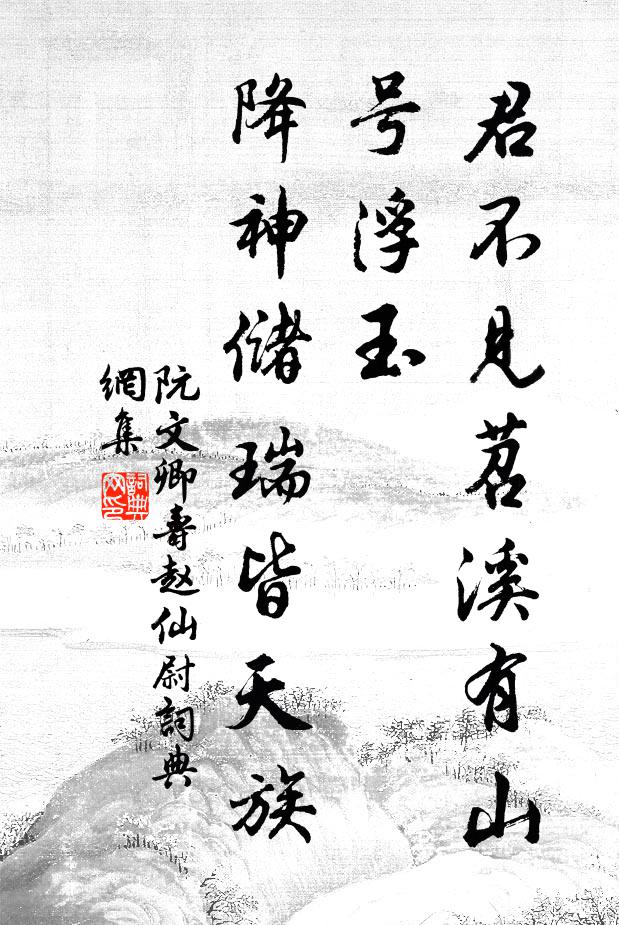 君不见苕溪有山
号浮玉
降神储瑞皆天族
阮文卿寿赵仙尉詞典
網集
詞典
网印